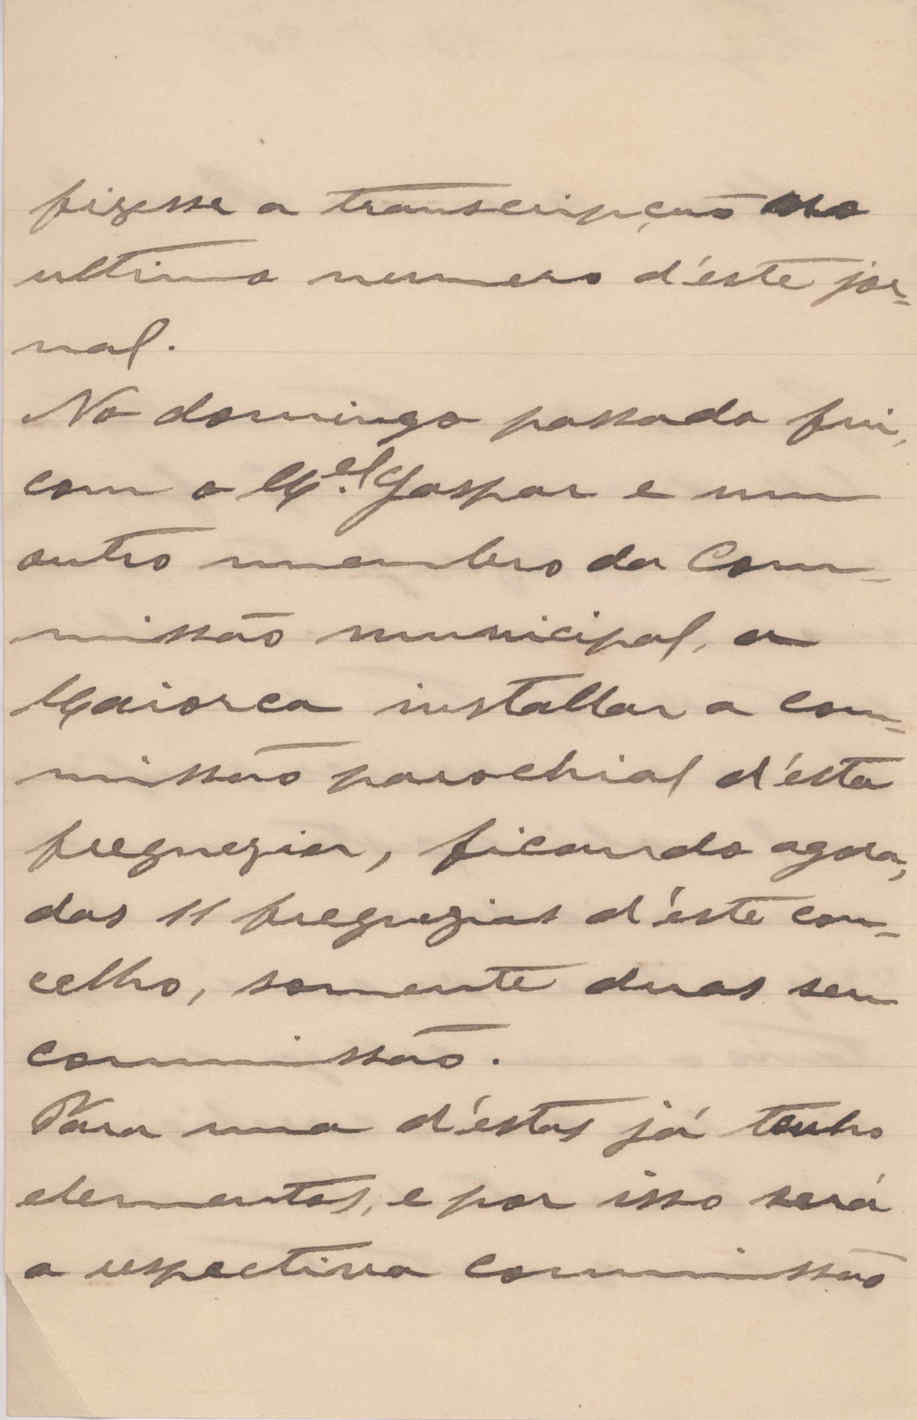 fizesse a transcripção no
ultimo numero d'éste jor-
nal.
No domingo passado fui,
com o M.el Gaspar e um
outro membro da Com-
missão municipal, a
Maiorca installar a com-
missão parochial d'ésta
freguezia, ficando agora,
das 11 freguezias d'éste con-
celho, somente duas sem
commissão.
Para uma d'éstas já tenho
elementos, e por isso será
a respectiva commissão